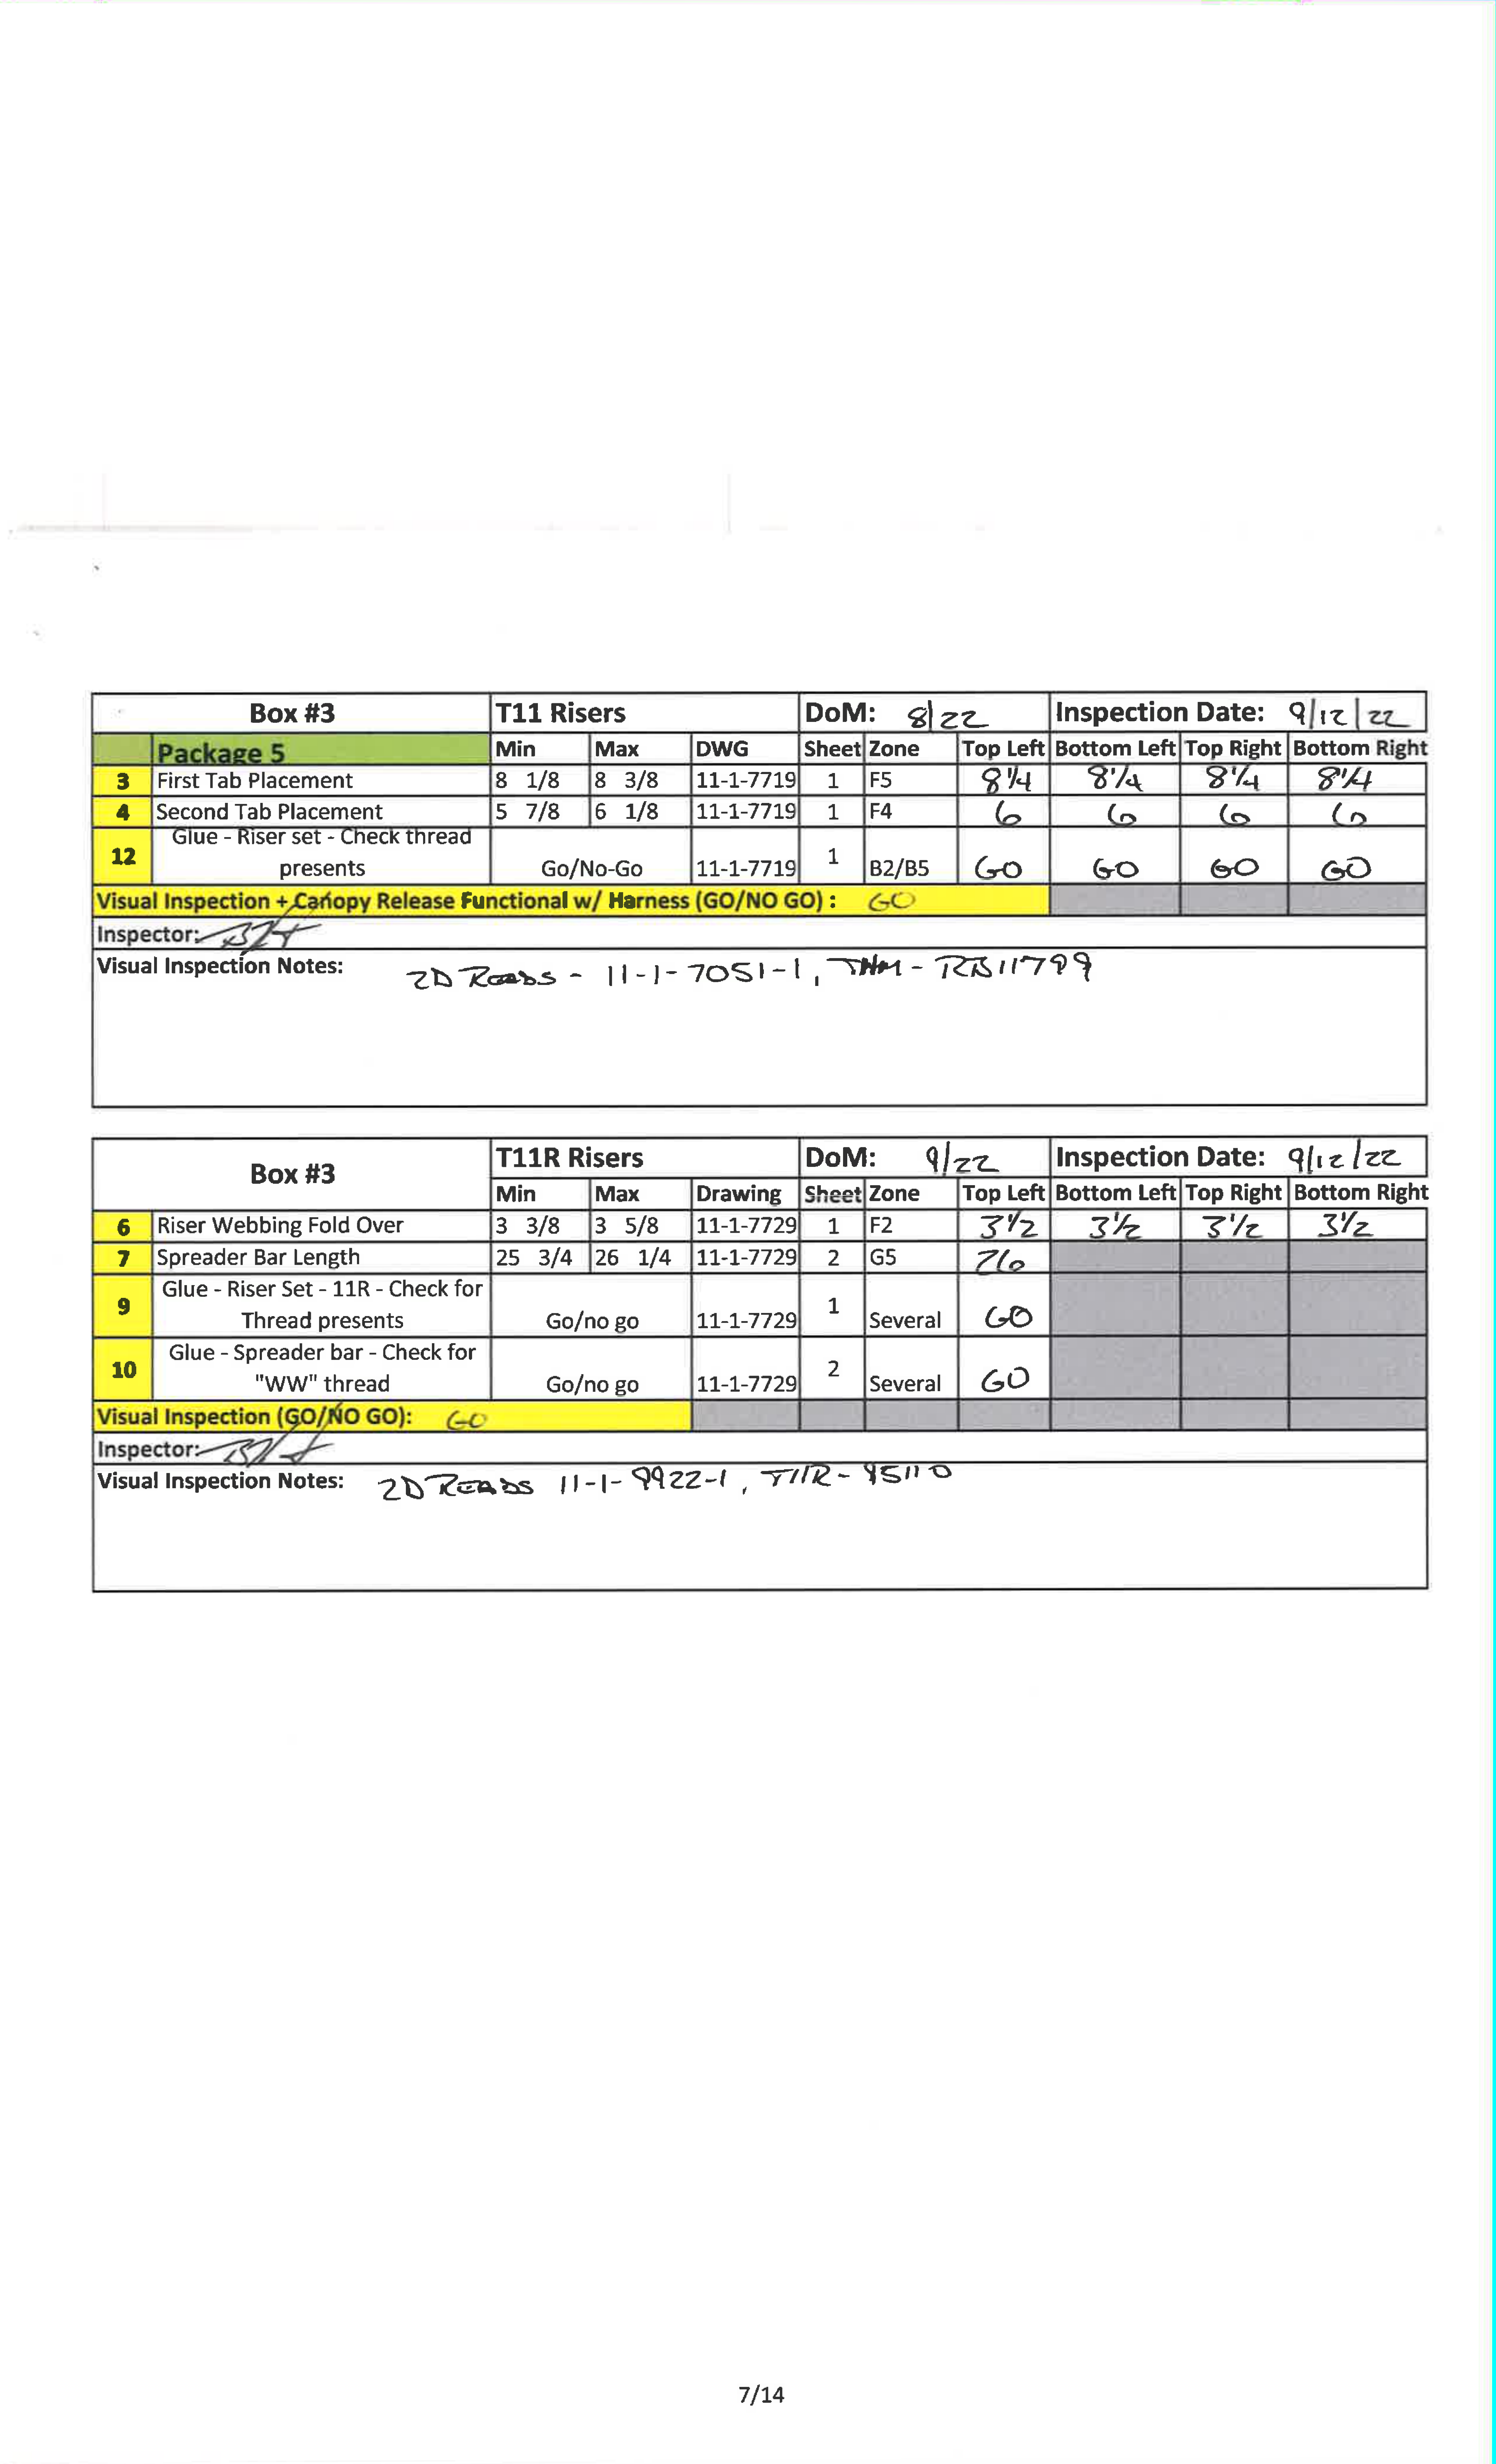 Box #3 T11 Risers DoM: 8/22 Inspection Date: 9/12/22
Package 5 Min Max DWG Sheet Zone Top Left Bottom Left Top Right Bottom Right
3 First Tab Placement 8 1/8 8 3/8 11-1-7719 1 F5 8 1/4 8 1/4 8 1/4 8 1/4
4 Second Tab Placement 5 7/8 6 1/8 11-1-7719 1 F4 6 6 6 6
12 Glue - Riser set - Check thread
presents Go/No-Go 11-1-7719 1 B2/B5 GO GO GO GO
Visual Inspection + Canopy Release Functional w/ Harness (GO/NO GO) : GO
Inspector:
Visual Inspection Notes: 2D Reads - 11-1-7051-1, - RB11799
Box #3 T11R Risers DoM: 9/22 Inspection Date: 9/12/22
Min Max Drawing Sheet Zone Top Left Bottom Left Top Right Bottom Right
6 Riser Webbing Fold Over 3 3/8 3 5/8 11-1-7729 1 F2 3 1/2 3 1/2 3 1/2 3 1/2
7 Spreader Bar Length 25 3/4 26 1/4 11-1-7729 2 G5 26
9 Glue - Riser Set - 11R - Check for
Thread presents Go/no go 11-1-7729 1 Several GO
10 Glue - Spreader bar - Check for
"WW" thread Go/no go 11-1-7729 2 Several GO
Visual Inspection (GO/NO GO): GO
Inspector:
Visual Inspection Notes: 2D Reads 11-1-9922-1, T11R-95110
7/14